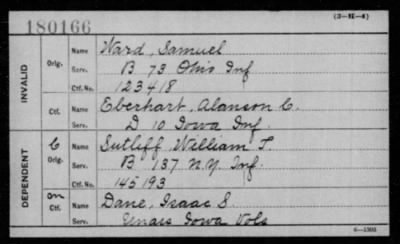 180166
(3-ME-4)
INVALID
Orig.
Name Ward, Samuel
Serv. B 73 Ohio Inf
Ctf. No. 123418
Ctf.
Name Eberhart, Alanson C.
Serv. D 10 Iowa Inf.
DEPENDENT
C
Orig.
Name Sutliff, William T.
Serv. B 137 N.Y. Inf.
Ctf. No. 145193
on
Ctf.
Name Dane, Isaac S.
Serv. Iowa Vols